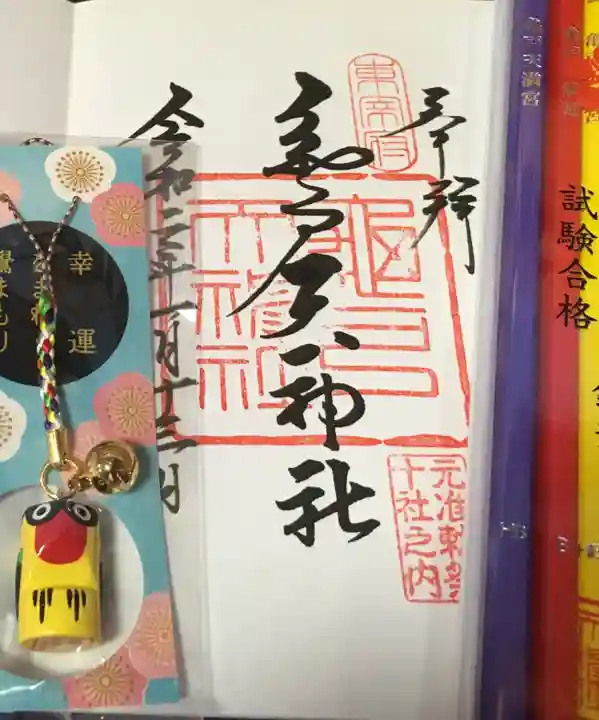 奉拝
東宰府
亀戸天神社
元准勅祭
十社之内
令和二年一月十三日
幸運
鷽まもり
天満宮
試験合格